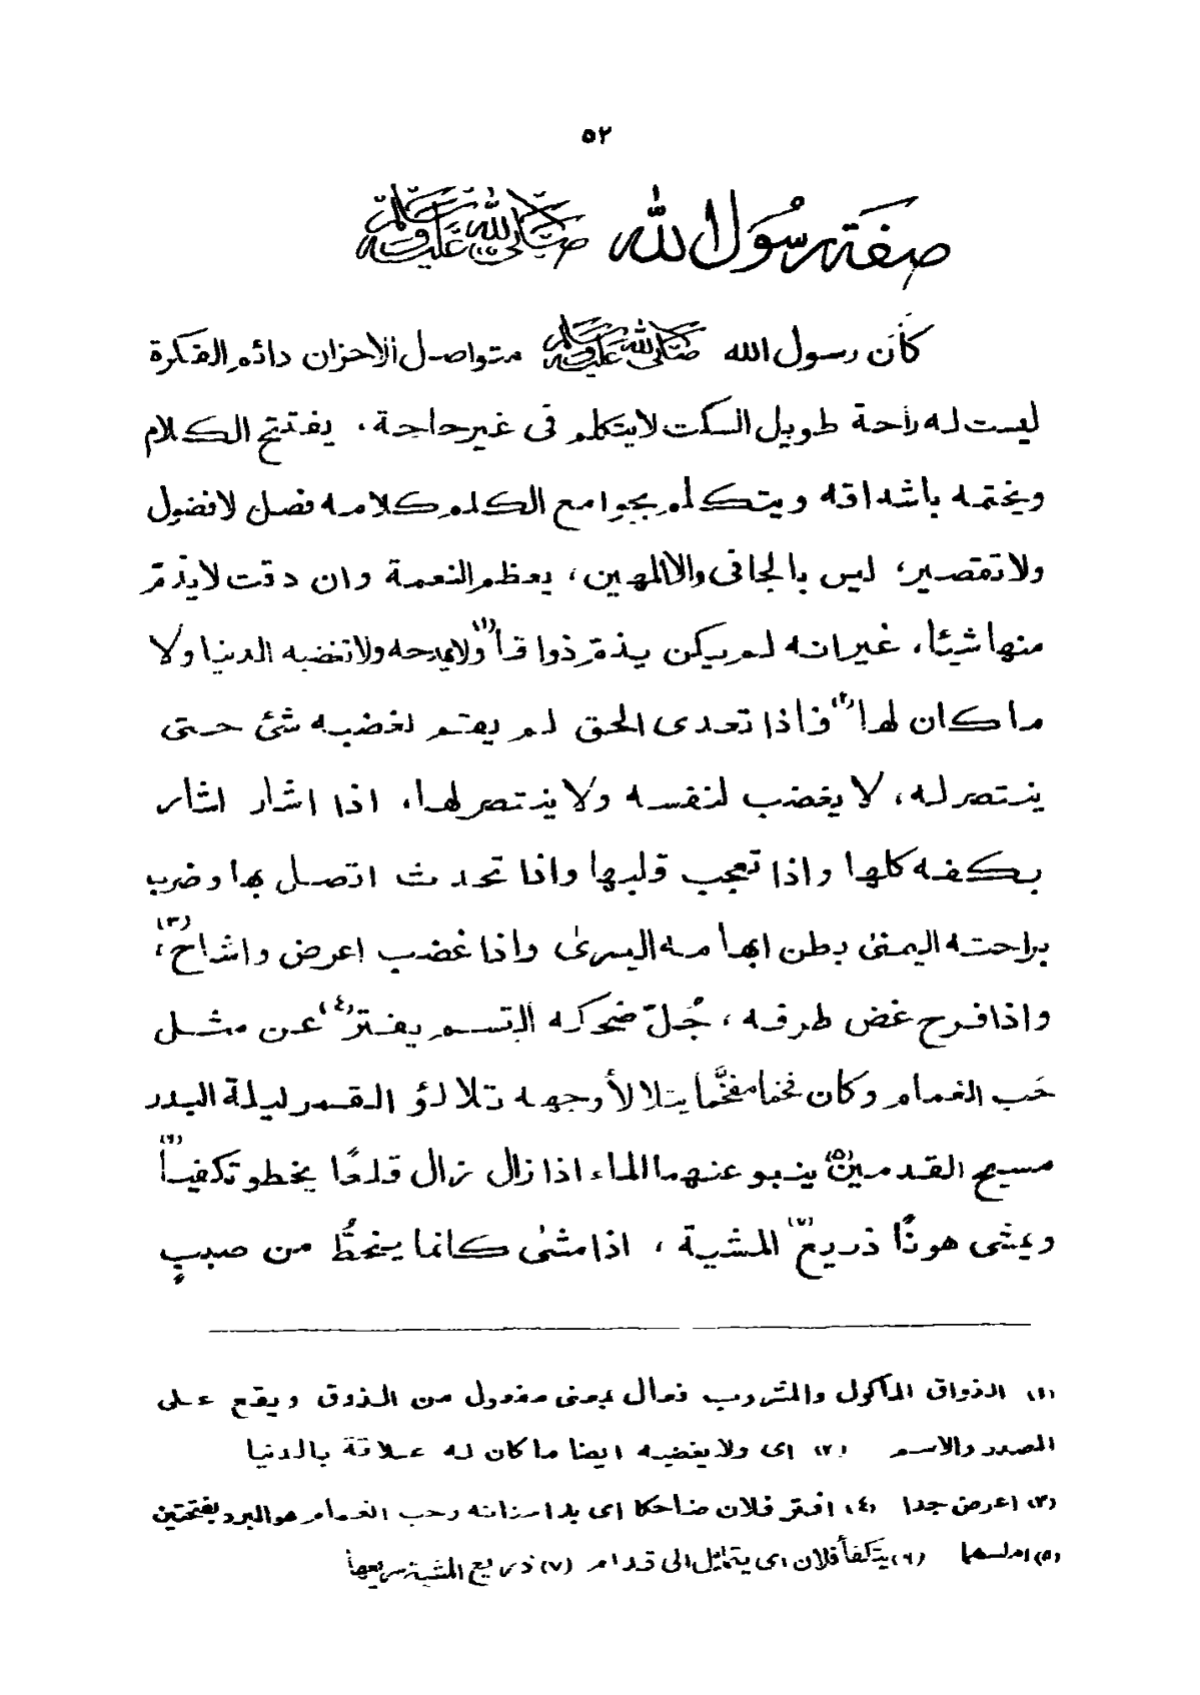 ٥٢
صفة رسول الله ﷺ
كان رسول الله ﷺ متواصل الأحزان دائم الفكرة
ليست له راحة طويل السكت لا يتكلم فى غير حاجة، يفتتح الكلام
ويختمه باشداقه ويتكلم بجوامع الكلم كلامه فصل لا فضول
ولا تقصير، ليس بالجافى والا المهين، يعظم النعمة وان دقت لا يذمّ
منها شيئا، غير انه لم يكن يذمّ ذواقا(١) ولا يمدحه ولا تغضبه الدنيا ولا
ما كان لها(٢) فاذا تعدى الحق لم يقم لغضبه شئ حتى
ينتصر له، لا يغضب لنفسه ولا ينتصر لها، اذا اشار اشار
بكفه كلها واذا تعجب قلبها واذا تحدث اتصل بها وضرب
براحته اليمنى بطن ابهامه اليسرىٰ واذا غضب اعرض واشاح(٣)،
واذا فرح غض طرفه، جُلّ ضحكه التبسم يفتر(٤) عن مثل
حَب الغمام وكان فخما مفخَّما يتلالأ وجهه تلالؤ القمر ليلة البدر
مسيح القدمين(٥) ينبو عنهما الماء اذا زال زال قلعًا يخطو تكفيأ(٦)
ويمشى هونًا ذريع(٧) المشية، اذا مشىٰ كانما ينحطُّ من صببٍ
(١) الذواق المأكول والمشروب فعال بمعنى مفعول من الذوق ويقع على
المصدر والاسم (٢) اى ولا يغضبه ايضا ما كان له علاقة بالدنيا
(٣) اعرض جدا (٤) افتر فلان ضاحكا اى بدا سنانه وحب الغمام هو البرد بفتحتين
(٥) املسهما (٦) يتكفأ فلان اى يتمايل الى قدام (٧) ذريع المشية سريعها